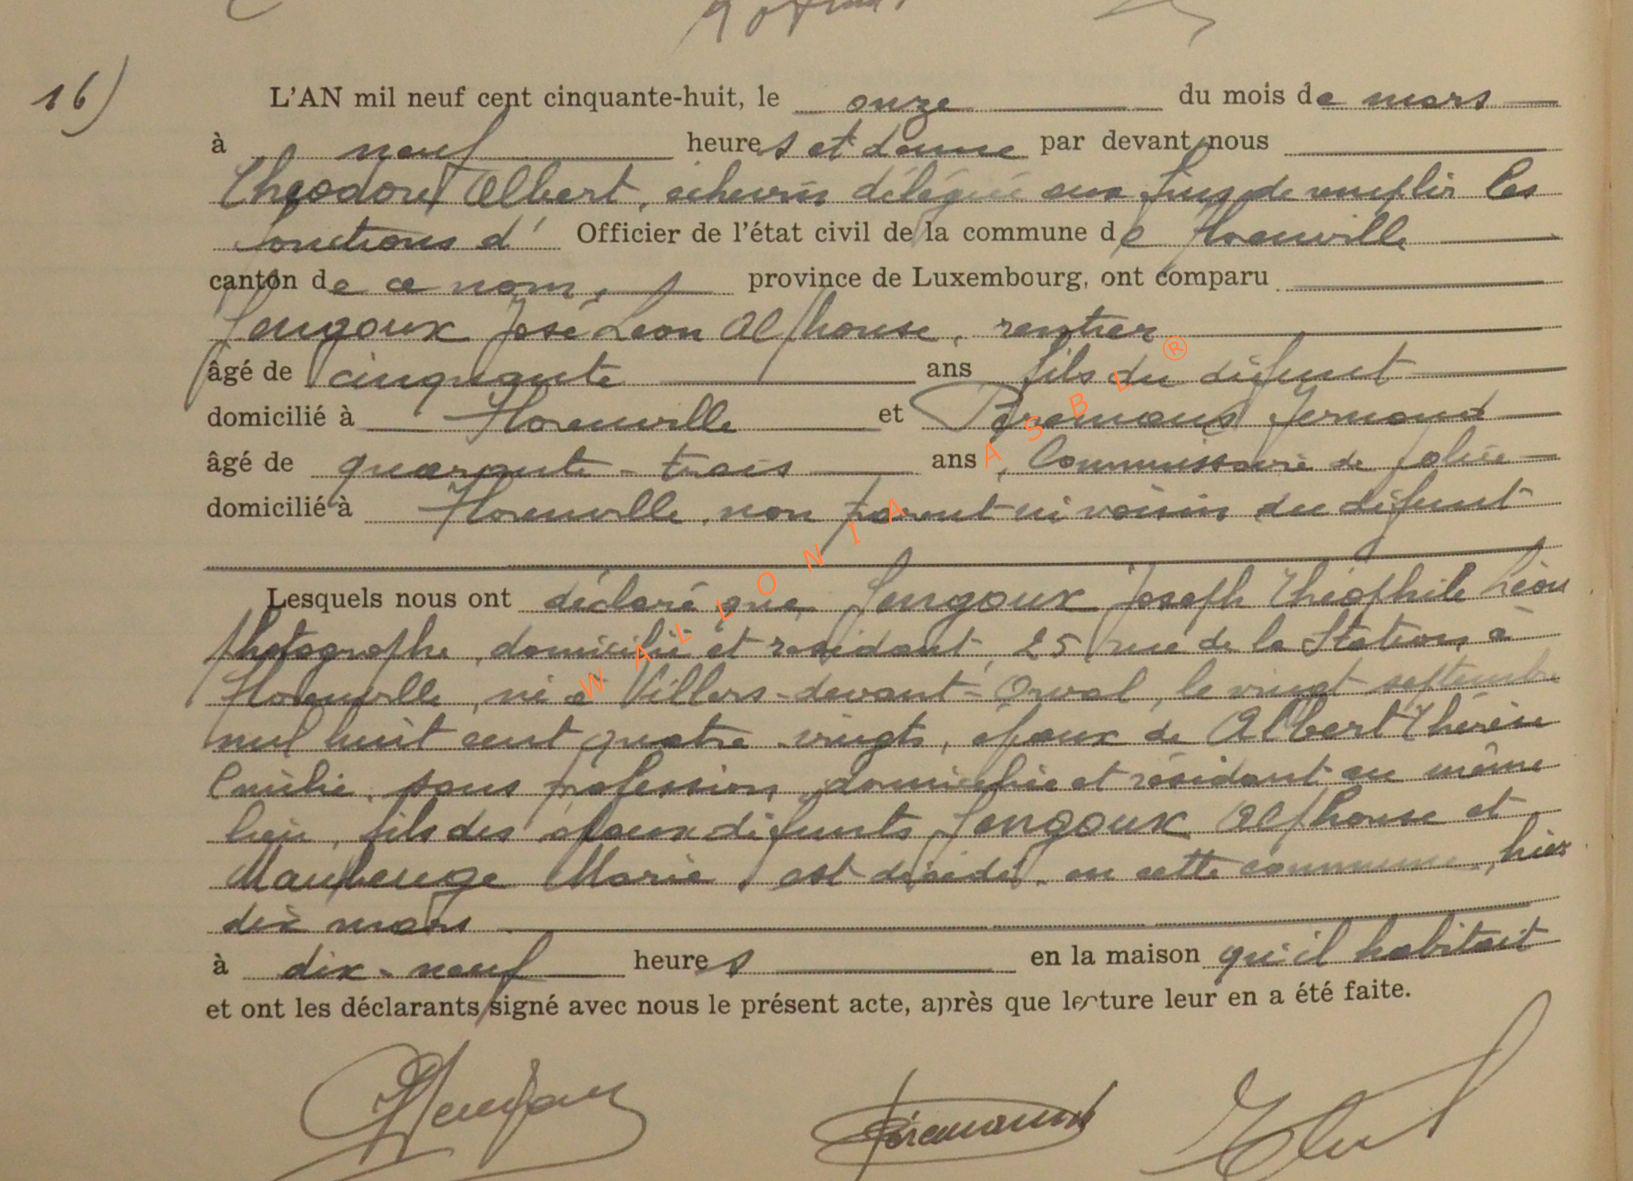 16)
L'AN mil neuf cent cinquante-huit, le onze du mois de mars
à neuf heures et demie par devant nous
Théodore Albert, échevin délégué aux fins de remplir les
fonctions d' Officier de l'état civil de la commune de Florenville
canton de ce nom, province de Luxembourg, ont comparu
Jengoux José Léon Alphonse, rentier
âgé de cinquante ans fils du défunt
domicilié à Florenville et Peremans Fernand
âgé de quarante-trois ans, Commissaire de police
domicilié à Florenville, non parent ni voisin du défunt
Lesquels nous ont déclaré que Jengoux Joseph Théophile Léon
photographe, domicilié et résidant, 25 rue de la Station à
Florenville, né à Villers-devant-Orval, le vingt septembre
mil huit cent quatre-vingts, époux de Albert Thérèse
Emélie, sans profession, domiciliée et résidant au même
lieu, fils des époux défunts Jengoux Alphonse et
Maubeuge Marie, est décédé en cette commune, hier
dix mars
à dix-neuf heures en la maison qu'il habitait
et ont les déclarants signé avec nous le présent acte, après que lecture leur en a été faite.
WALLONIA ASBL ®